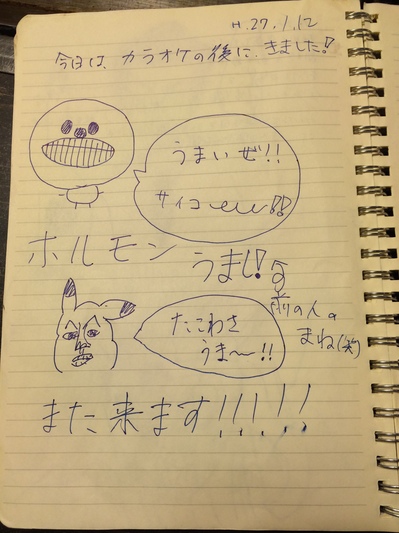 H.27.1.12
今日は、カラオケの後に、きました!
うまいぜ!!
サイコー!!
ホルモン うまし!!
前の人の
まね(笑)
たこわさ
うま〜!!
また来ます!!!!!